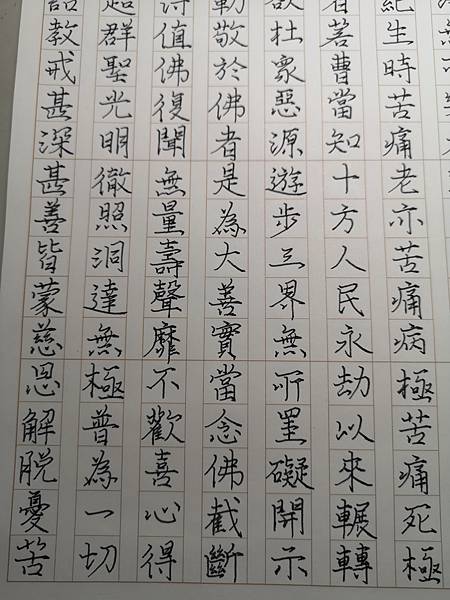 生時苦痛老亦苦痛病極苦痛死極
曹當知十方人民永劫以來輾轉
杜眾惡源遊步三界無所罣礙開示
敬於佛者是為大善實當念佛截斷
值佛復聞無量壽聲靡不歡喜心得
群聖光明徹照洞達無極普為一切
教戒甚深甚善皆蒙慈恩解脫憂苦